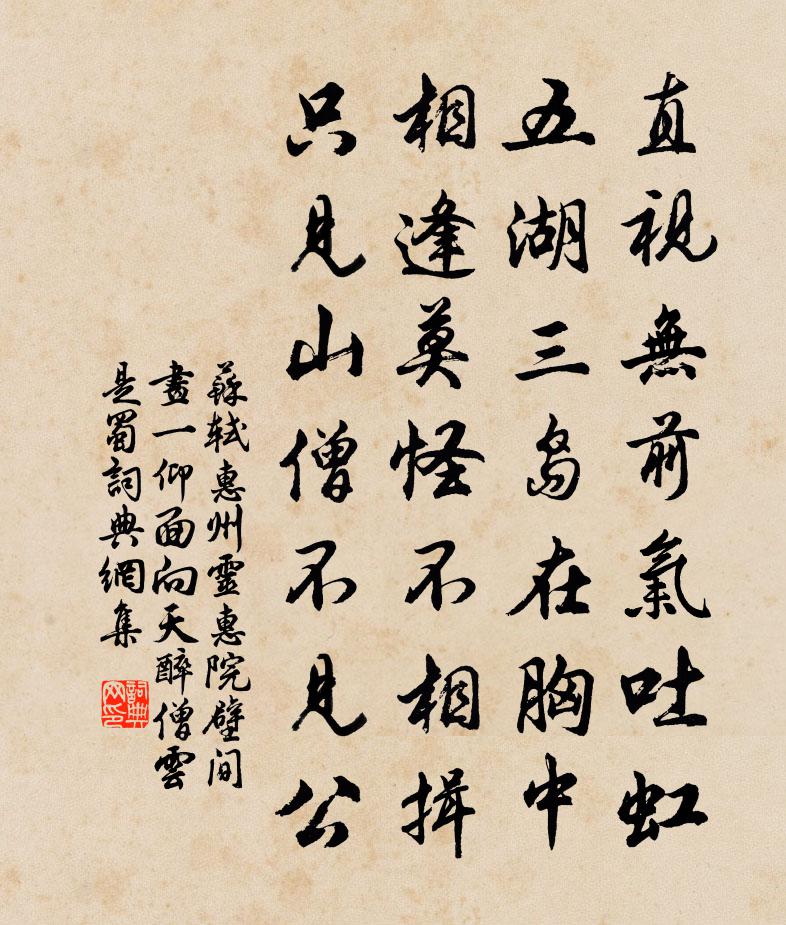 直視無前氣吐虹
五湖三島在胸中
相逢莫怪不相揖
只見山僧不見公
蘇軾惠州靈惠院壁间
畫一仰面向天醉僧雲
是蜀詞典網集
詞典
网印